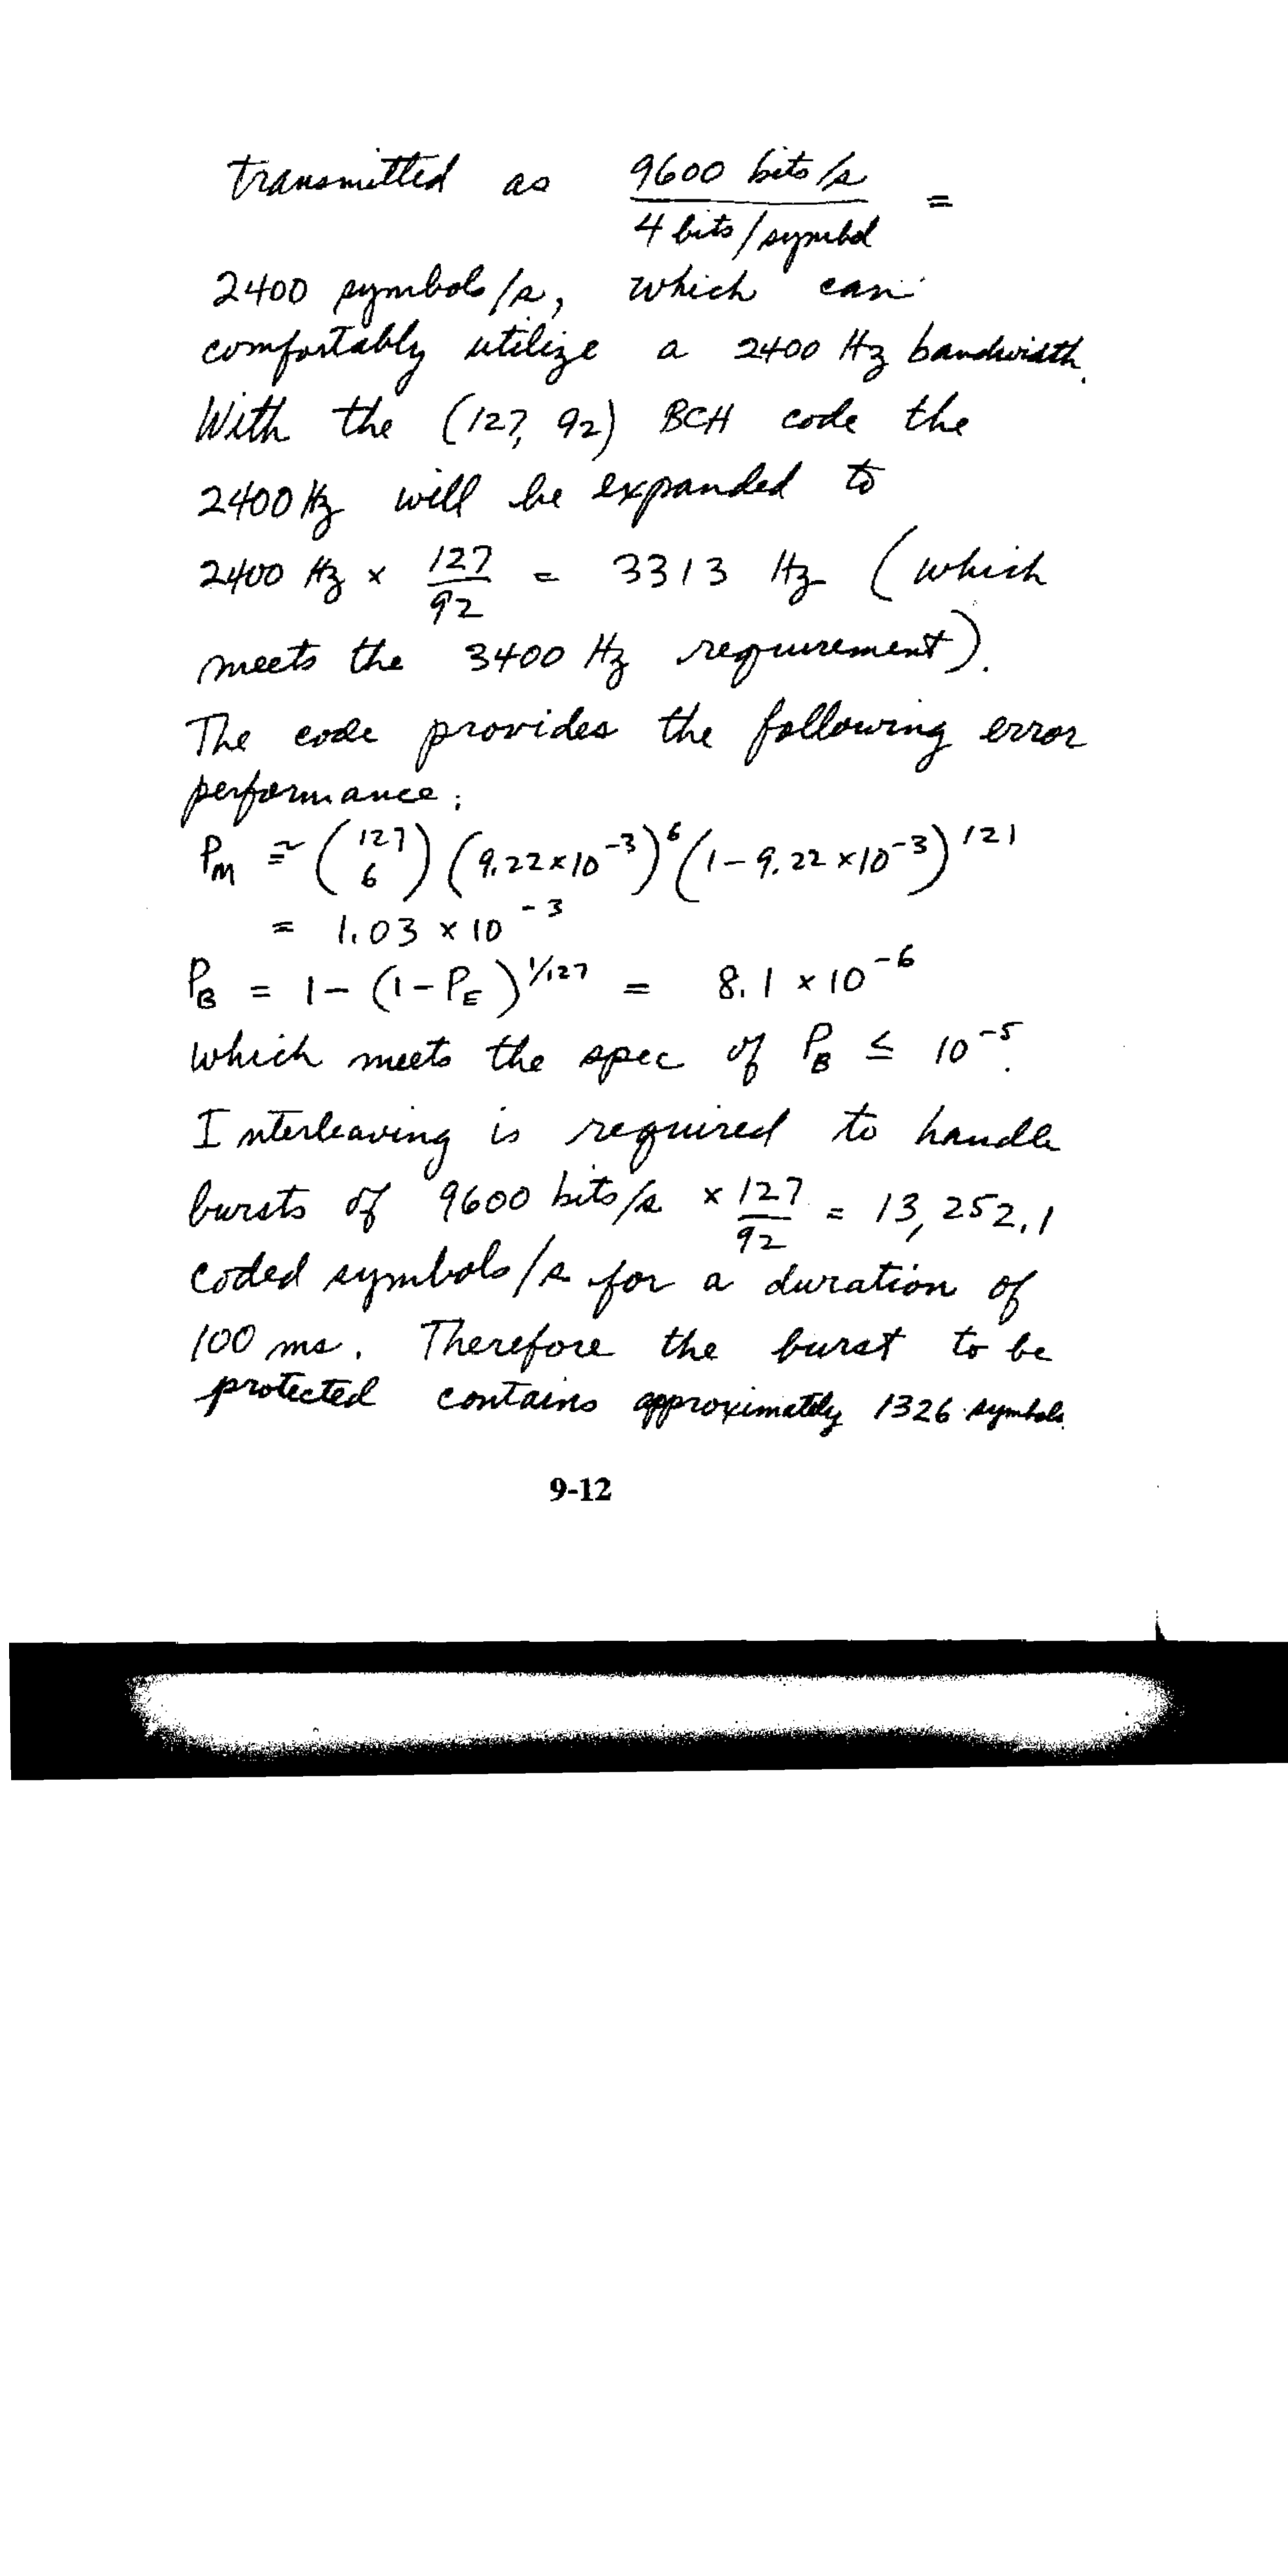 transmitted as 9600 bits/s / 4 bits/symbol =
2400 symbols/s, which can
comfortably utilize a 2400 Hz bandwidth.
With the (127, 92) BCH code the
2400 Hz will be expanded to
2400 Hz × 127/92 = 3313 Hz (which
meets the 3400 Hz requirement).
The code provides the following error
performance:
P_M ≅ (127 6) (9.22×10^-3)^6 (1-9.22×10^-3)^121
= 1.03 × 10^-3
P_B = 1-(1-P_E)^1/127 = 8.1 × 10^-6
which meets the spec of P_B ≤ 10^-5.
Interleaving is required to handle
bursts of 9600 bits/s × 127/92 = 13,252.1
coded symbols/s for a duration of
100 ms. Therefore the burst to be
protected contains approximately 1326 symbols.
9-12